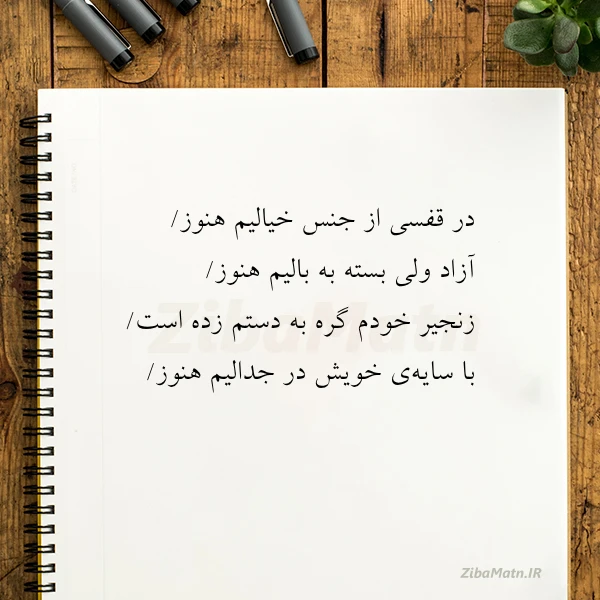 در قفسی از جنس خیالیم هنوز/
آزاد ولی بسته به بالیم هنوز/
زنجیر خودم گره به دستم زده است/
با سایه‌ی خویش در جدالیم هنوز/
ZibaMatn
ZibaMatn.IR